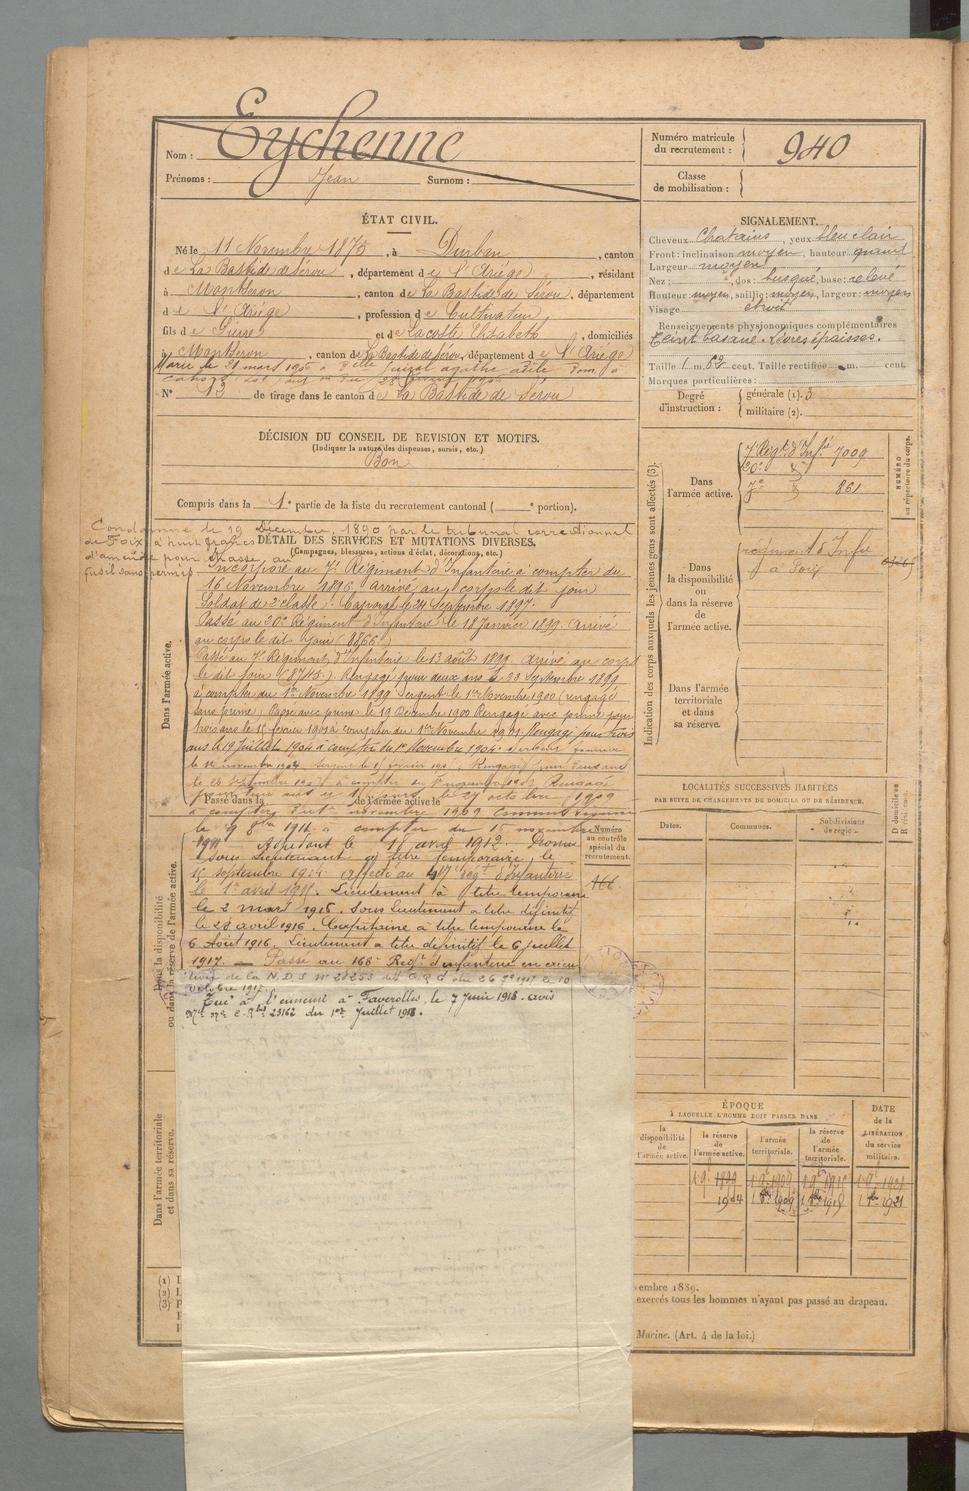 Nom : Eychenne
Prénoms : Jean Surnom :
Numéro matricule du recrutement : 940
Classe de mobilisation :
ÉTAT CIVIL.
Né le 11 Novembre 1875, à Durban, canton
de La Bastide de Sérou, département de l'Ariège, résidant
à Montseron, canton de La Bastide de Sérou, département
de l'Ariège, profession de Cultivateur,
fils de Pierre et de Lacoste Elisabeth, domiciliés
à Montseron, canton de La Bastide de Sérou, département de l'Ariège
Marié le 31 mars 1906 à
N° 13 de tirage dans le canton de La Bastide de Sérou
SIGNALEMENT.
Cheveux Chatains, yeux bleu clair
Front : inclinaison moyen, hauteur grand
Largeur moyen
Nez : , dos : busqué, base : relevé
Hauteur moyen, saillie : moyen, largeur : moyen
Visage étroit
Renseignements physionomiques complémentaires
Teint basané. Lèvres épaisses.
Taille 1 m. cent. Taille rectifiée m. cent.
Marques particulières :
Degré d'instruction : générale (1). 3
militaire (2).
DÉCISION DU CONSEIL DE REVISION ET MOTIFS.
(Indiquer la nature des dispenses, sursis, etc.)
Bon
Compris dans la 1e partie de la liste du recrutement cantonal ( e portion).
Condamné le 19 Décembre 1890 par le tribunal correctionnel
de Foix à huit francs
d'amende pour chasse au
fusil sans permis
DÉTAIL DES SERVICES ET MUTATIONS DIVERSES.
(Campagnes, blessures, actions d'éclat, décorations, etc.)
Dans l'armée active.
Incorporé au 7e Régiment d'Infanterie à compter du
16 Novembre 1896 arrivé au corps le dit jour
Soldat de 2e classe. Caporal le 24 Septembre 1897.
Passé au 20e Régiment d'Infanterie le 18 Janvier 1899. Arrivé
au corps le dit jour (8866)
Passé au 7e Régiment d'Infanterie le 13 août 1899 arrivé au corps
le dit jour (8745) Rengagé pour deux ans le 23 Septembre 1899
à compter du 1er Novembre 1899 Sergent le 1er Novembre 1900 (rengagé
sans prime) Passé avec prime le 19 Décembre 1900 Rengagé avec prime pour
trois ans le 15 février 1901 à compter du 1er Novembre 1901 Rengagé pour trois
ans le 19 Juillet 1904 à compter du 1er Novembre 1904.
le 1er novembre 1904 Rengagé pour deux ans
Rengagé
le 27 octobre 1909
à compter du novembre 1909
Passé dans la de l'armée active le
Dans la disponibilité ou dans la réserve de l'armée active.
le 9 8bre 1911 à compter du 15 novembre
1911 Adjudant le avril 1912. Promu
sous Lieutenant à titre temporaire le
septembre 1914 affecté au régt d'Infanterie
le 1er avril 1915. Lieutenant à titre temporaire
le 2 mars 1916. Sous lieutenant à titre définitif
le 28 avril 1916. Capitaine à titre temporaire le
6 Août 1916. Lieutenant à titre définitif le 6 juillet
1917. Passé au 168e Regt d'infanterie en exécu
tion de la N.D.S. N° 21253 du G.Q.G du 26 1917 le 10
octobre 1917.
Tué à l'ennemi à Faverolles, le 7 Juin 1918. avis
23162 du 1er Juillet 1918.
Numéro au contrôle spécial du recrutement.
Dans l'armée territoriale et dans sa réserve.
Indication des corps auxquels les jeunes gens sont affectés (3).
NUMÉRO au répertoire du corps.
Dans l'armée active.
7e Régt d'Infie 7009
20e
7e 861
Dans la disponibilité ou dans la réserve de l'armée active.
régiment d'Infie
à Foix
Dans l'armée territoriale et dans sa réserve.
LOCALITÉS SUCCESSIVES HABITÉES
PAR SUITE DE CHANGEMENTS DE DOMICILE OU DE RÉSIDENCE.
Dates. Communes. Subdivisions de région.
ÉPOQUE
À LAQUELLE L'HOMME DOIT PASSER DANS
la disponibilité de l'armée active.
la réserve de l'armée active.
l'armée territoriale.
la réserve de l'armée territoriale.
DATE de la LIBÉRATION du service militaire.
1899
1904 1909 1921
(1)
(2)
(3)
embre 1889.
exercés tous les hommes n'ayant pas passé au drapeau.
Marine. (Art. 4 de la loi.)